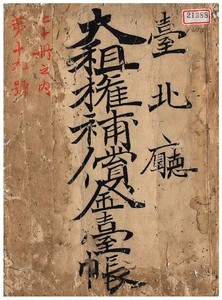 臺北廳
大租權補償金臺帳
二十冊之內
第十九號
21388